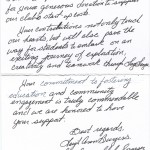 for your generous donation to support
our club's start up costs.
Your contributions not only touch
our hearts but will also pave the
way for students to embark on an
exciting journey of exploration,
creativity and teamwork through
Your commitment to fostering
education and community
engagement is truly commendable
and we are honored to have
your support.
Best regards,